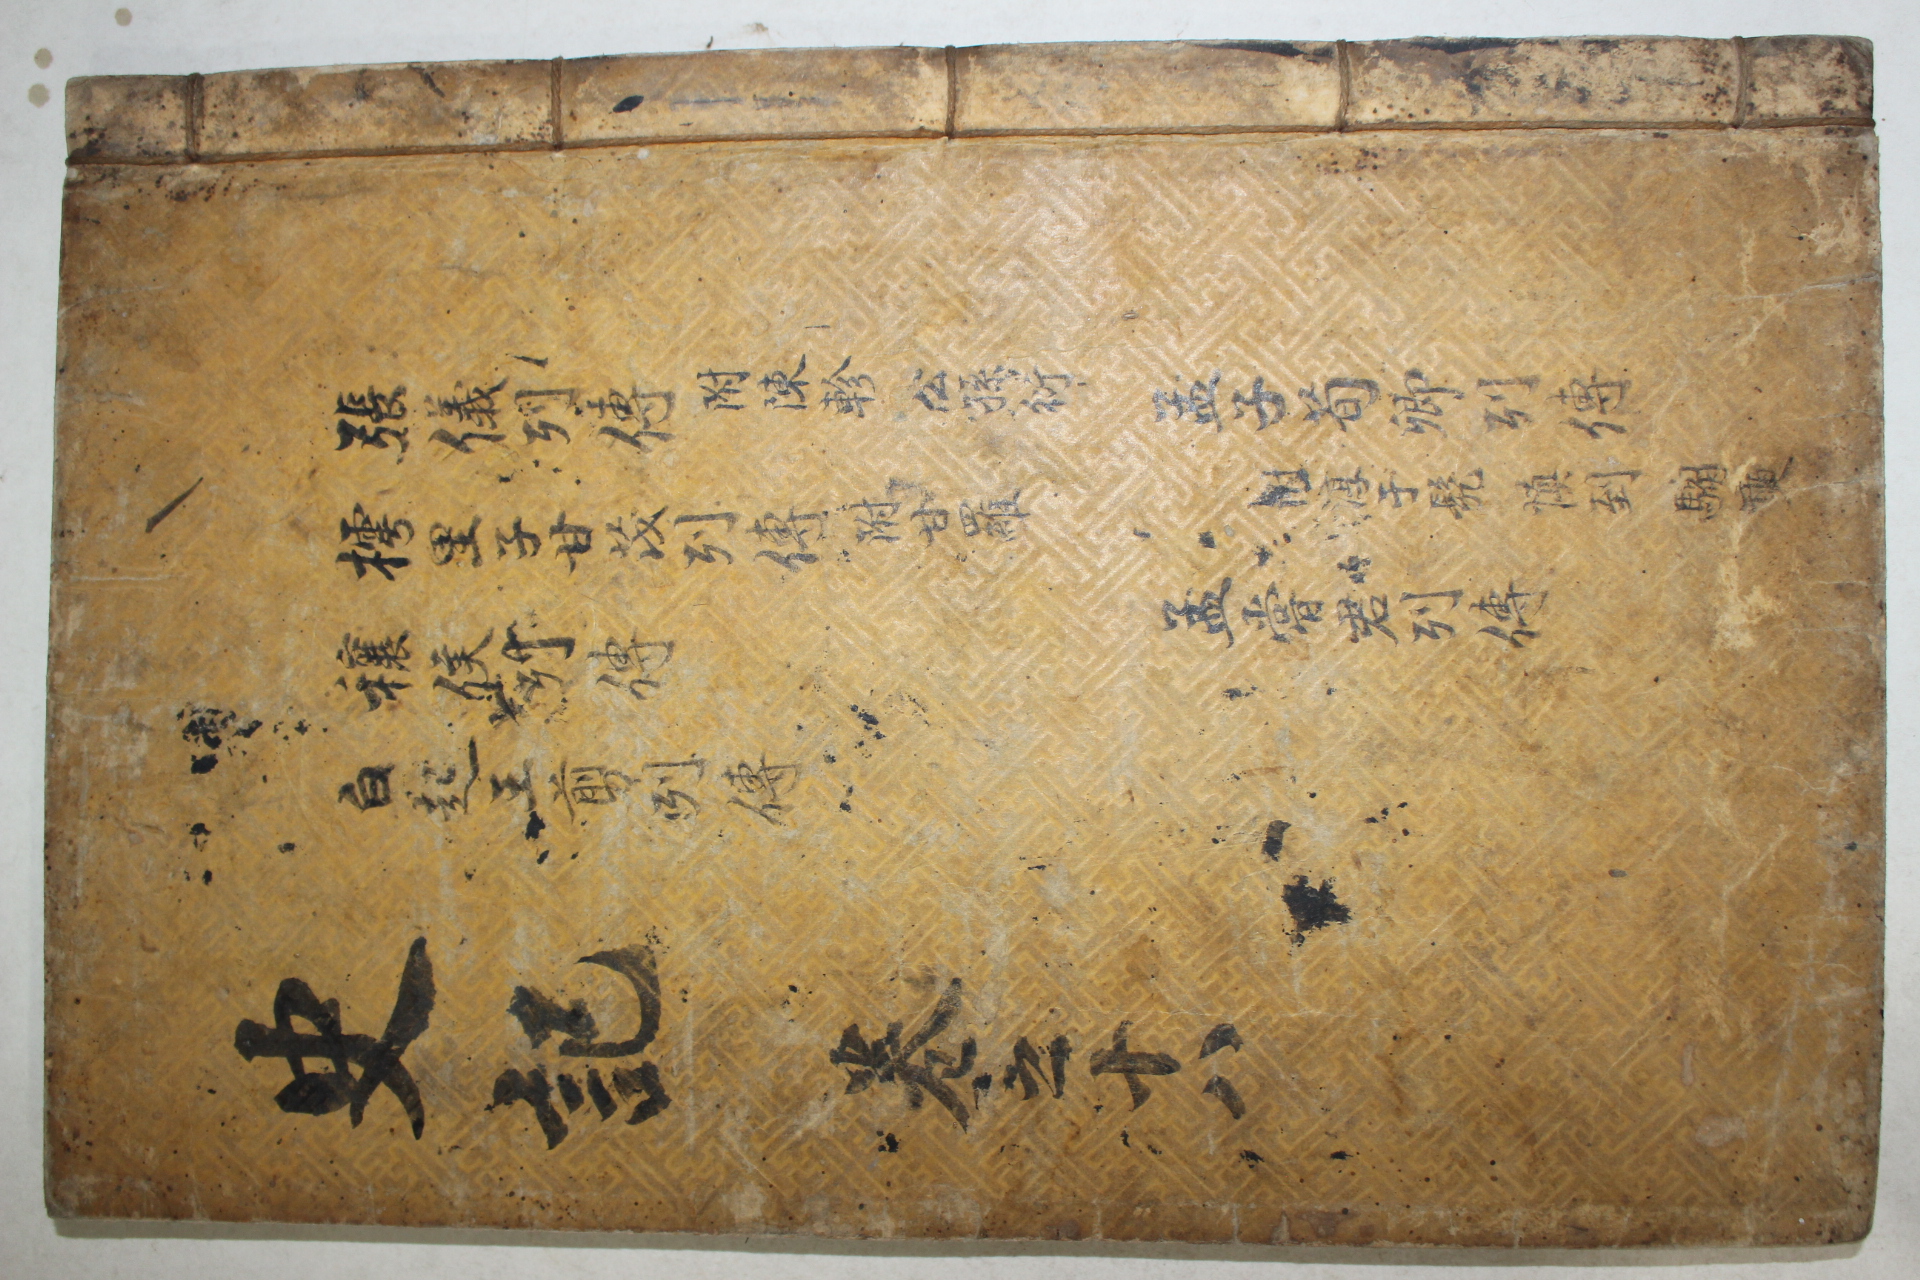 張儀列傳 附陳軫 公孫衍
樗里子甘茂列傳 附甘羅
穰侯列傳
白起王翦列傳
孟子荀卿列傳
附淳于髡 慎到 騶奭
孟嘗君列傳
史記 卷之十八